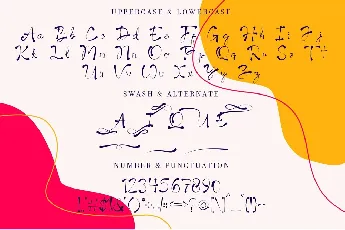 UPPERCASE & LOWERCASE
Aa Bb Cc Dd Ee Ff Gg Hh Ii Jj
Kk Ll Mm Nn Oo Pp Qq Rr Ss Tt
Uu Vv Ww Xx Yy Zz
SWASH & ALTERNATE
NUMBER & PUNCTUATION
1234567890